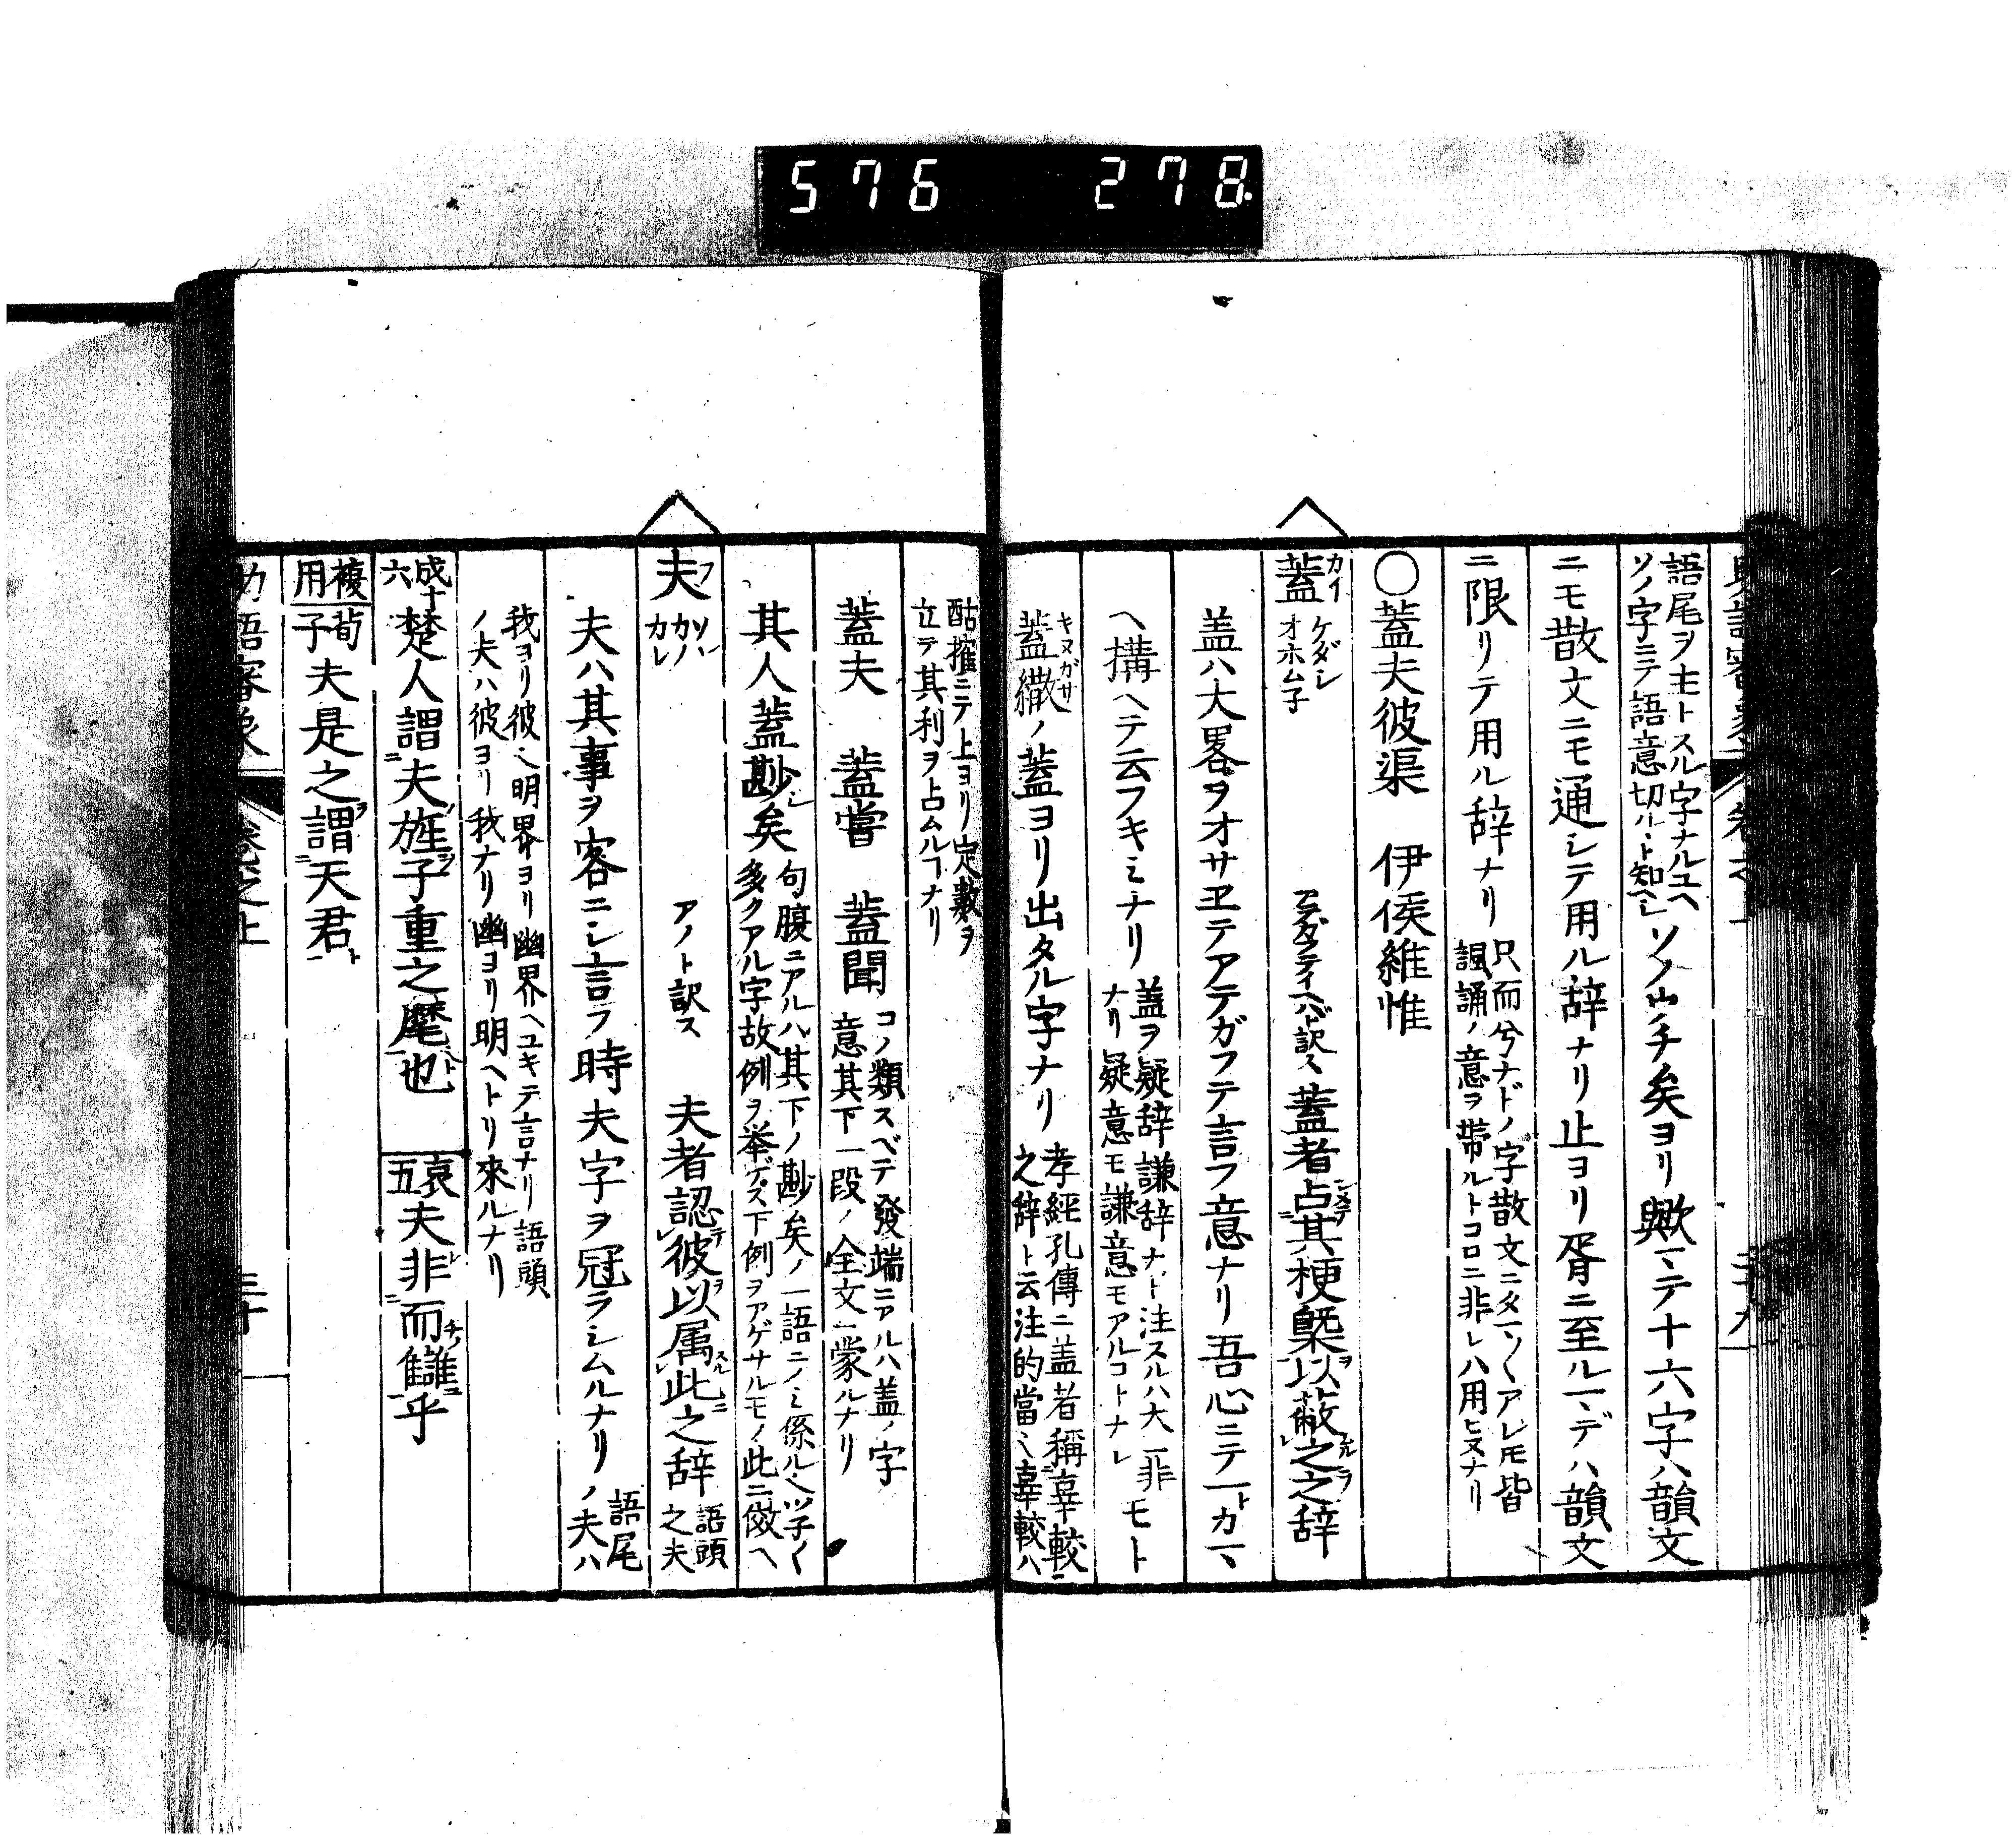 576 278.
語尾ヲ主トスル字ナルユヘ
ソノ字ニテ語意切ルヽト知ベシ
ソノ山ノチ矣ヨリ歟マテ十六字ハ韻文
ニモ散文ニモ通シテ用ル辞ナリ止ヨリ胥ニ至ルマデハ韻文
ニ限リテ用ル辞ナリ
只而兮ナドノ字散文ニタマ〱アレモ皆
諷誦ノ意ヲ帯ルトコロニ非レハ用ヒヌナリ
〇蓋夫彼渠 伊侯維惟
蓋 カイ ケダシ オホム子
ヒダタイヘバト訳ス 蓋者占其梗槩以蔽之之辞
盖ハ大畧ヲオサヱテアテガフテ言フ意ナリ吾心ニテトカマヽ
ヘ構ヘテ云フキミナリ
盖ヲ疑辞謙辞ナト注スルハ大ニ非
ナリ疑意モ謙意モアルコトナレ
モト
蓋繖ノ蓋ヨリ出タル字ナリ キヌガサ
孝經孔傳ニ盖者稱辜較
之辞ト云注的當也辜較ハ
酤搉ニテ上ヨリ定數ヲ
立テ其利ヲ占ムルヿナリ
蓋夫 蓋嘗 蓋聞
コノ類スベテ發端ニアルハ盖ノ字
意其下一段ノ全文ヘ蒙ルナリ
其人蓋尠矣
句腹ニアルハ其下ノ尠矣ノ一語ニノミ係ル也ツ子〱
多クアル字故例ヲ挙ゲス下例ヲアゲサルモノ此ニ倣ヘ
夫 フ ソレ カノ カレ
アノト訳ス 夫者認彼以属此之辞
語頭
之夫
夫ハ其事ヲ客ニシ言フ時夫字ヲ冠ラシムルナリ
語尾
ノ夫ハ
我ヨリ彼也明界ヨリ幽界ヘユキテ言ナリ語頭
ノ夫ハ彼ヨリ我ナリ幽ヨリ明ヘトリ來ルナリ
成十
六
楚人謂夫旌子重之麾也
哀
五
夫非而讎乎
複
用
荀
子
夫是之謂天君